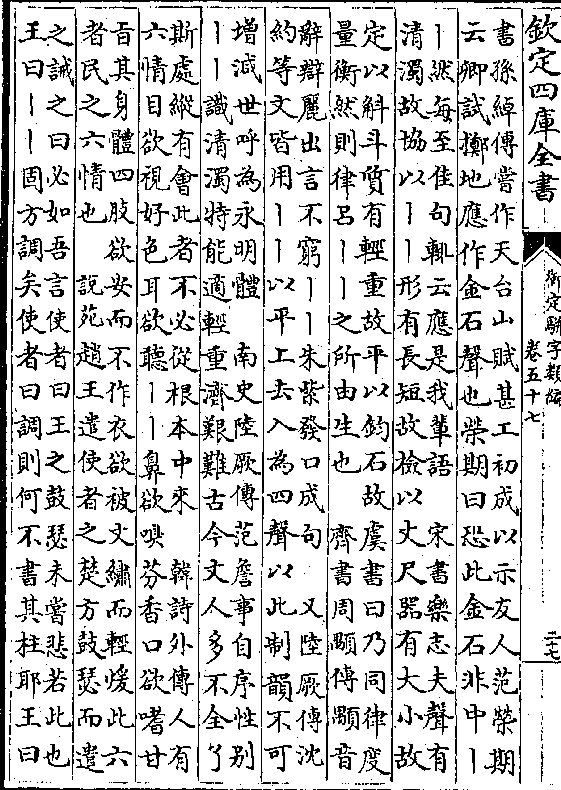 欽定四庫全書
御定駢字類編
卷五十七
二七
書孫綽傳嘗作天台山賦甚工初成以示友人范榮期
云卿試擲地應作金石聲也榮期曰恐此金石非中丨
丨然每至佳句輒云應是我輩語　宋書樂志夫聲有
清濁故協以丨丨形有長短故檢以丈尺器有大小故
定以斛斗質有輕重故平以鈞石故　虞書曰乃同律度
量衡然則律呂丨丨之所由生也　齊書周顒傳顒音
辭辯麗出言不窮丨丨朱紫發口成句　又陸厥傳沈
約等文皆用丨丨以平上去入為四聲以此制韻不可
增減世呼為永明體　南史陸厥傳范詹事自序性别
丨丨識清濁特能適輕重濟艱難古今文人多不全了
斯處縱有會此者不必從根本中來　韓詩外傳人有
六情目欲視好色耳欲聽丨丨鼻欲嗅芬香口欲嗜甘
㫖其身體四肢欲安而不作衣欲被文繡而輕煖此六
者民之六情也　說苑趙王遣使者之楚方鼓瑟而遣
之誡之曰必如吾言使者曰王之鼓瑟未嘗悲若此也
王曰丨丨固方調矣使者曰調則何不書其柱耶王曰